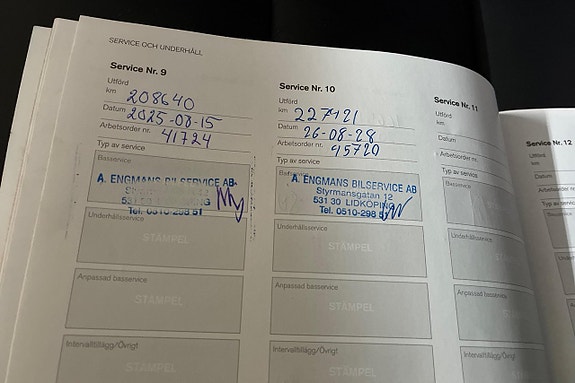 SERVICE OCH UNDERHÅLL
Service Nr. 9
Utförd
km 208640
Datum 2025-08-15
Arbetsorder nr. 41724
Typ av service
Basservice
A. ENGMANS BILSERVICE AB
Tel. 0510-298 51
Underhållsservice
STÄMPEL
Anpassad basservice
STÄMPEL
Intervalltillägg/Övrigt
STÄMPEL
Service Nr. 10
Utförd
km 227421
Datum 26-08-28
Arbetsorder nr. 45720
Typ av service
A. ENGMANS BILSERVICE AB
Styrmansgatan 12
531 30 LIDKÖPING
Tel. 0510-298 51
Underhållsservice
STÄMPEL
Anpassad basservice
STÄMPEL
Intervalltillägg/Övrigt
STÄMPEL
Service Nr. 11
Utförd
km
Datum
Arbetsorder nr.
Typ av service
Basservice
Underhållsservice
Anpassad basservice
Intervalltillägg/Övrigt
Service Nr. 12
Utförd
km
Datum
Arbetsorder
Typ av service